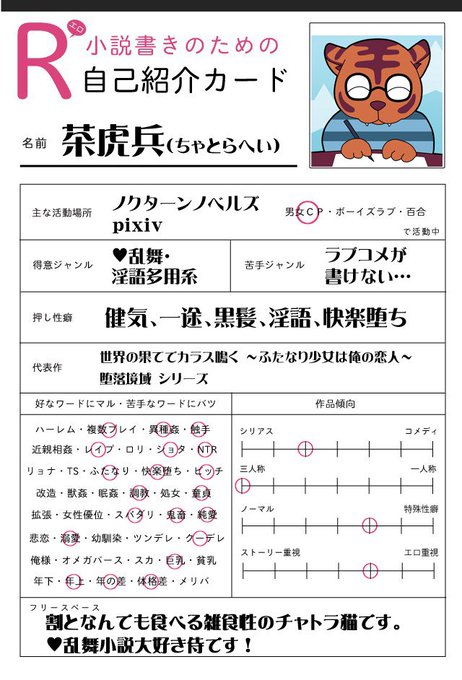 Rエロ小説書きのための
自己紹介カード
名前 茶虎兵(ちゃとらへい)
主な活動場所 ノクターンノベルズ
pixiv
男女CP・ボーイズラブ・百合
で活動中
得意ジャンル ♥乱舞・
淫語多用系
苦手ジャンル ラブコメが
書けない…
押し性癖 健気、一途、黒髪、淫語、快楽堕ち
代表作 世界の果ててカラス鳴く ～ふたなり少女は俺の恋人～
堕落境域 シリーズ
好なワードにマル・苦手なワードにバツ
ハーレム・複数プレイ・異種姦・触手
近親相姦・レイプ・ロリ・ショタ・NTR
リョナ・TS・ふたなり・快楽堕ち・ビッチ
改造・獣姦・眠姦・調教・処女・童貞
拡張・女性優位・スパダリ・鬼畜・純愛
悲恋・溺愛・幼馴染・ツンデレ・クーデレ
俺様・オメガバース・スカ・巨乳・貧乳
年下・年上・年の差・体格差・メリバ
作品傾向
シリアス コメディ
三人称 一人称
ノーマル 特殊性癖
ストーリー重視 エロ重視
フリースペース
割となんても食べる雑食性のチャトラ猫です。
♥乱舞小説大好き侍です！